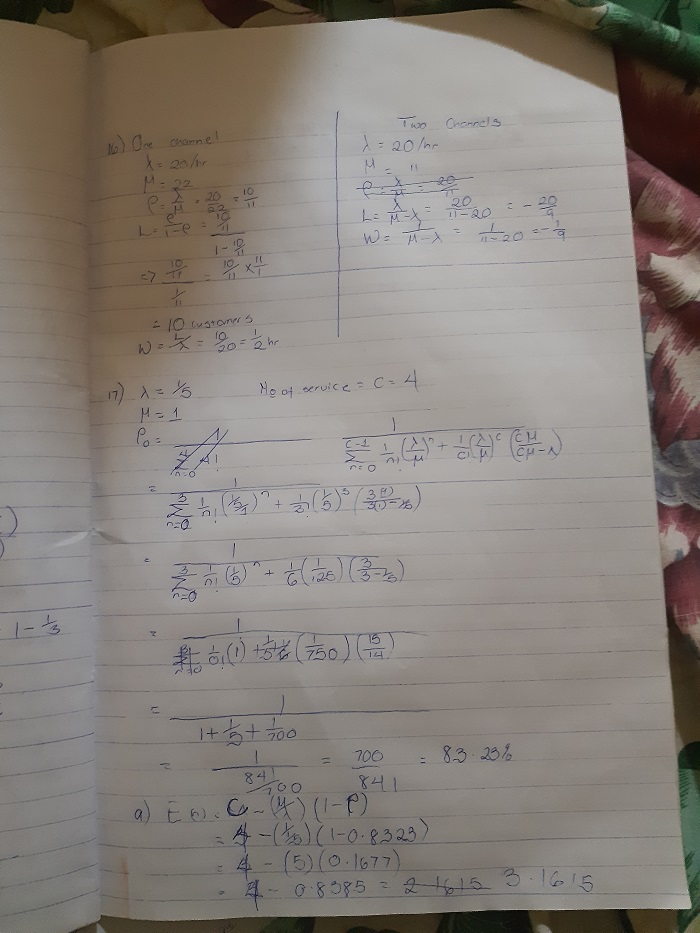 16) One channel
λ = 20/hr
μ = 22
ρ = λ/μ = 20/22 = 10/11
L = ρ/(1-ρ) = (10/11)/(1 - 10/11)
=> (10/11)/(1/11) = 10/11 × 11/1
= 10 customers
W = L/λ = 10/20 = 1/2 hr
Two Channels
λ = 20/hr
μ = 11
ρ = λ/μ = 20/11
L = λ/(μ-λ) = 20/(11-20) = -20/9
W = 1/(μ-λ) = 1/(11-20) = -1/9
17) λ = 1/5 No of service = C = 4
μ = 1
P0 = 1/(Σ n=0 C-1 1/n! (λ/μ)^n + 1/C! (λ/μ)^c (Cμ/(Cμ-λ)))
= 1/(Σ n=0 3 1/n! (1/5/1)^n + 1/3! (1/5)^3 (3(1)/(3(1)-1/5)))
= 1/(Σ n=0 3 1/n! (1/5)^n + 1/6 (1/125) (3/(3-1/5)))
= 1/(1/0! (1) + 1/5 + (1/750) (15/14))
= 1/(1 + 1/5 + 1/700)
= 1/(841/700) = 700/841 = 83.23%
a) E(s) = C - (μ/λ)(1-P)
= 4 - (1/1/5)(1-0.8323)
= 4 - (5)(0.1677)
= 4 - 0.8385 = 2.1615 3.1615
1 - 1/3